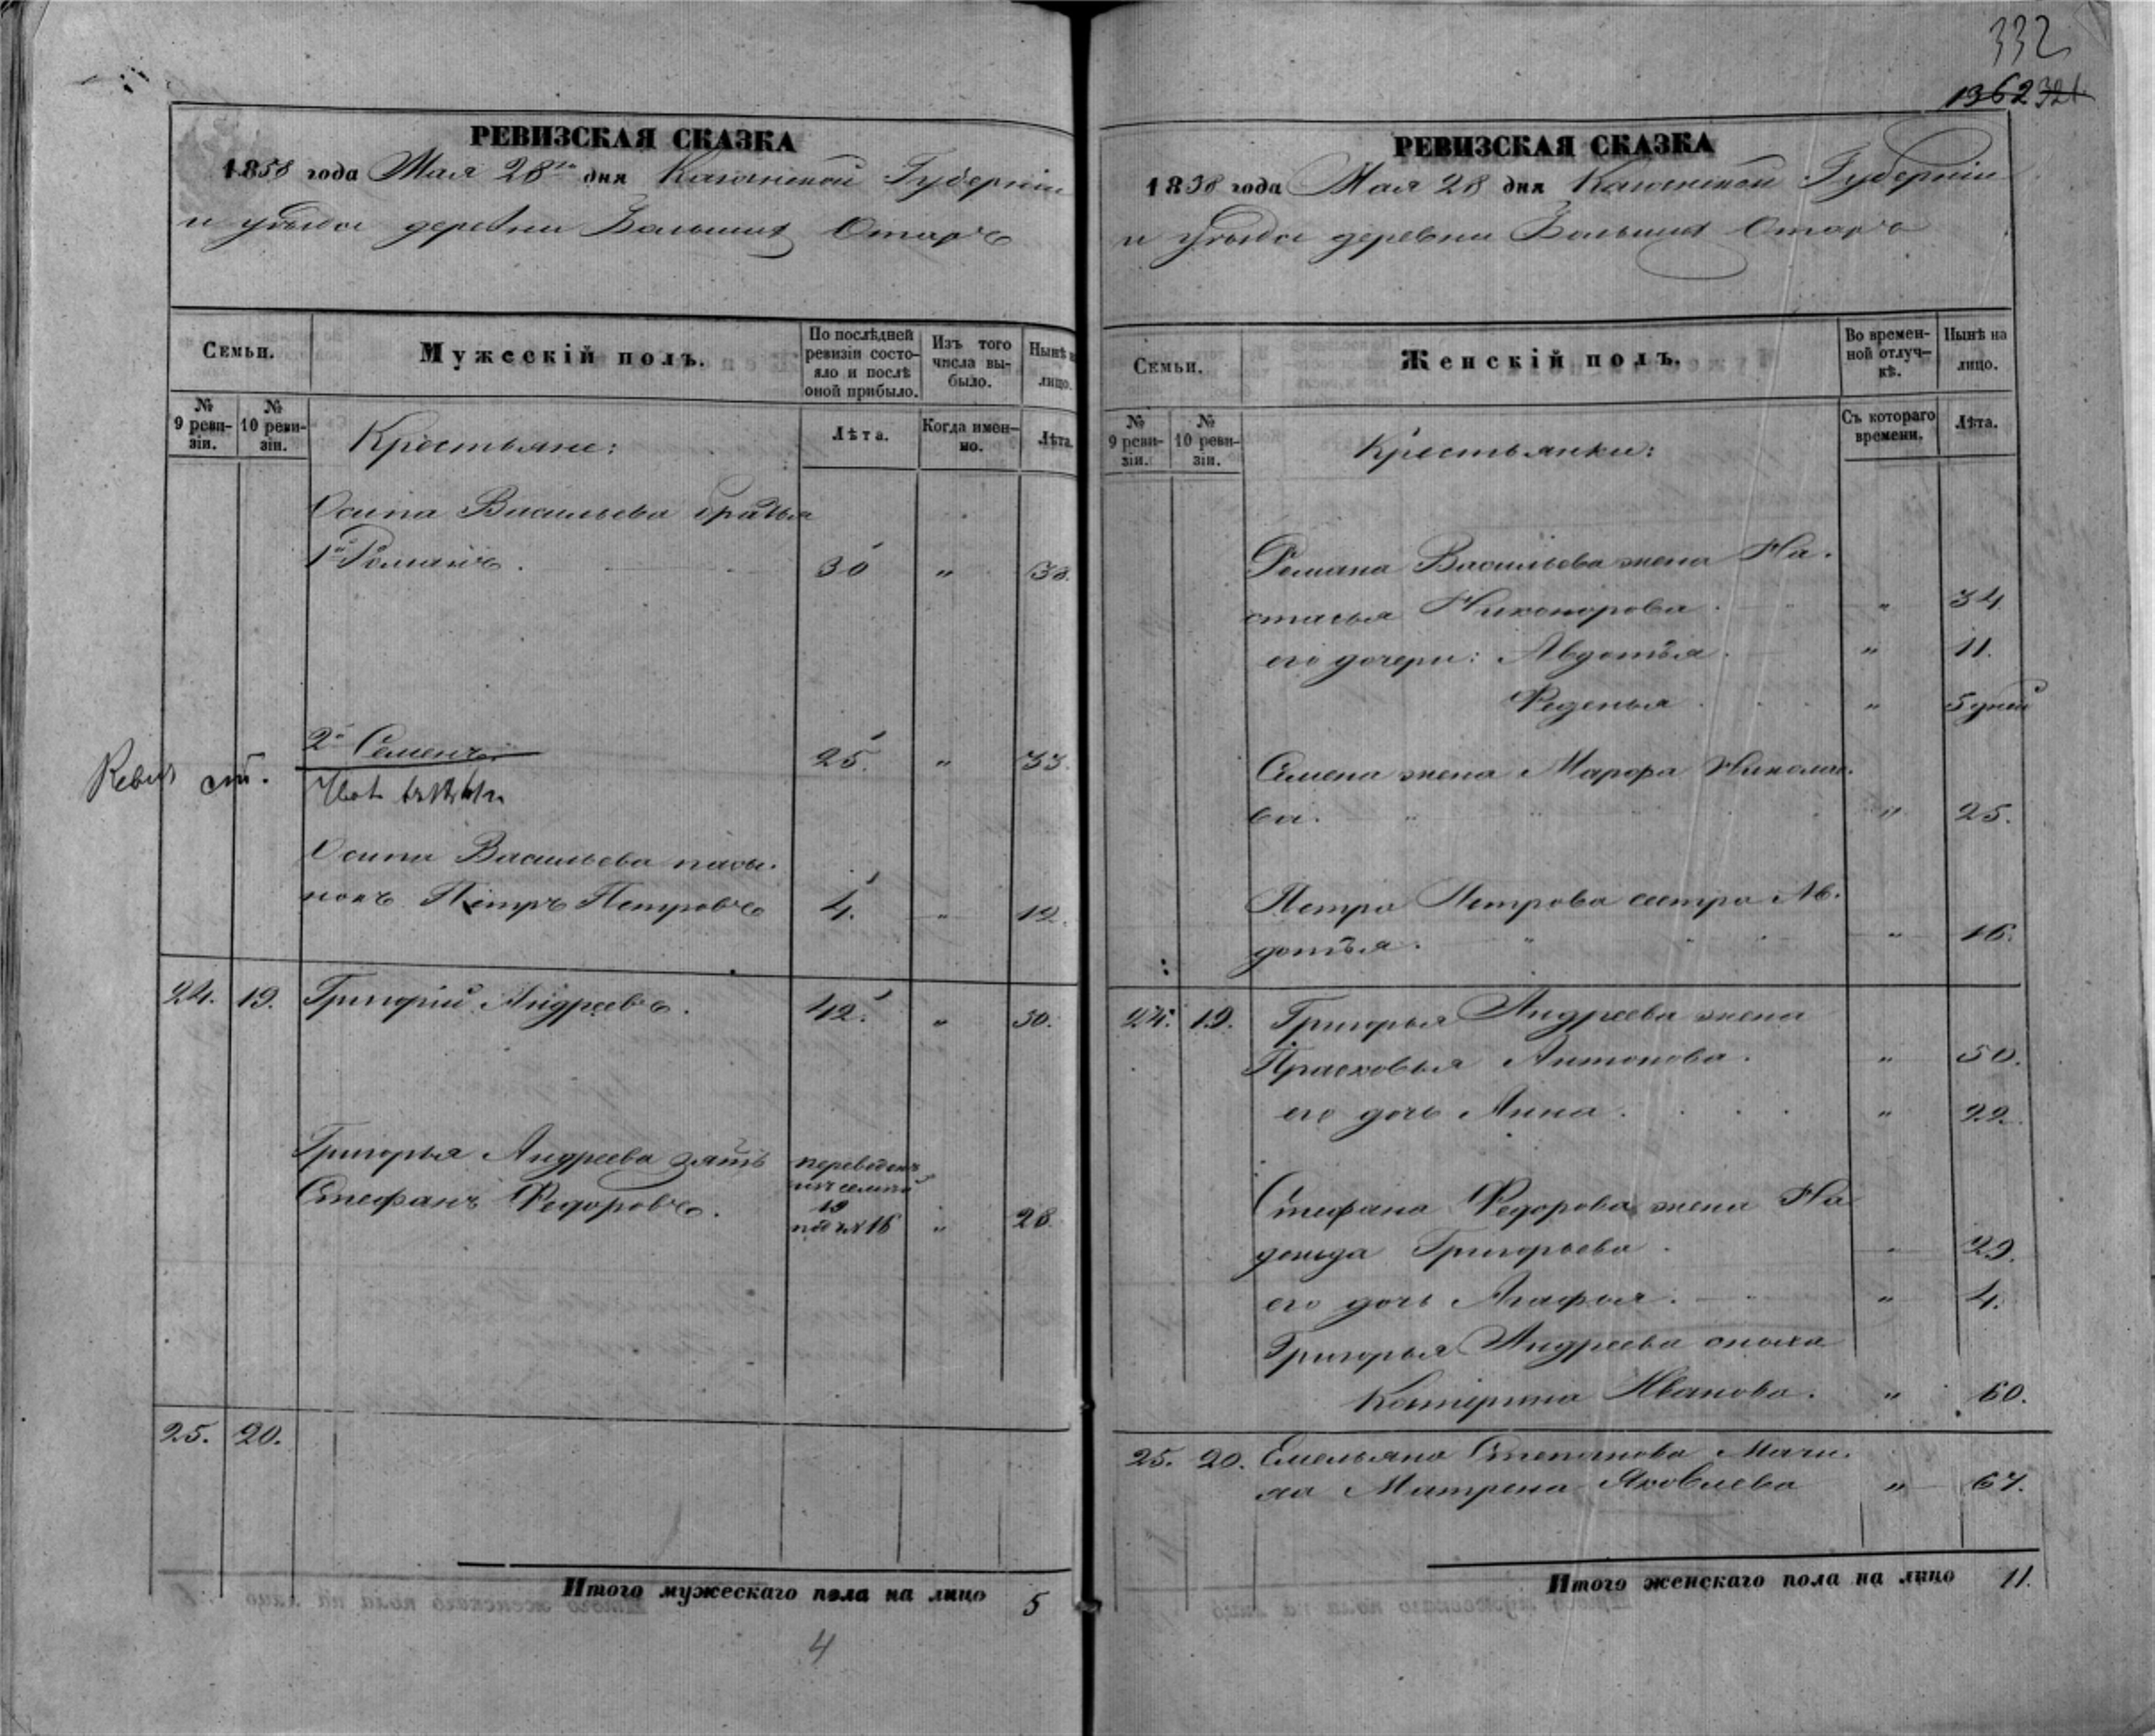 332
1362 321.
РЕВИЗСКАЯ СКАЗКА
1858 года Мая 28го дня Казанской Губерніи
и уѣзда деревни Большихъ Отаръ
Семьи.
Мужескій полъ.
По послѣдней ревизіи состояло и послѣ оной прибыло.
Изъ того числа выбыло.
Нынѣ на лицо.
№ 9 ревизіи.
№ 10 ревизіи.
Крестьяне:
Лѣта.
Когда именно.
Лѣта.
Осипа Васильева братья
1й Романъ. 30 " 38.
2й Семенъ. 25. " 33.
Ревиз ст.
Осипа Васильева пасы-
нокъ Петръ Петровъ 4. " 12.
24. 19. Григорій Андреевъ. 42. " 50.
Григорья Андреева зять переведенъ
Стефанъ Федоровъ. изъ семьи
19
подъ № 16 " 28.
25. 20.
Итого мужескаго пола на лицо 5
4
РЕВИЗСКАЯ СКАЗКА
1858 года Мая 28 дня Казанской Губерніи
и уѣзда деревни Большихъ Отаръ
Семьи.
Женскій полъ.
Во временной отлучкѣ.
Нынѣ на лицо.
№ 9 ревизіи.
№ 10 ревизіи.
Крестьянки:
Съ котораго времени.
Лѣта.
Романа Васильева жена На-
стасья Никонорова. " 34
его дочери: Авдотья. " 11.
Феденья " 5 дней
Семена жена Марфа Николае-
ва. " 25.
Петра Петрова сестра Ав-
дотья. " 16.
24. 19. Григорья Андреева жена
Прасковья Антонова. " 50.
его дочь Анна. " 22.
Стефана Федорова жена На
дежда Григорьева. " 29.
его дочь Агафья. " 4.
Григорья Андреева сноха
Катерина Иванова. " 60.
25. 20. Емельяна Степанова Мачи-
ха Матрена Яковлева " 67.
Итого женскаго пола на лицо 11.